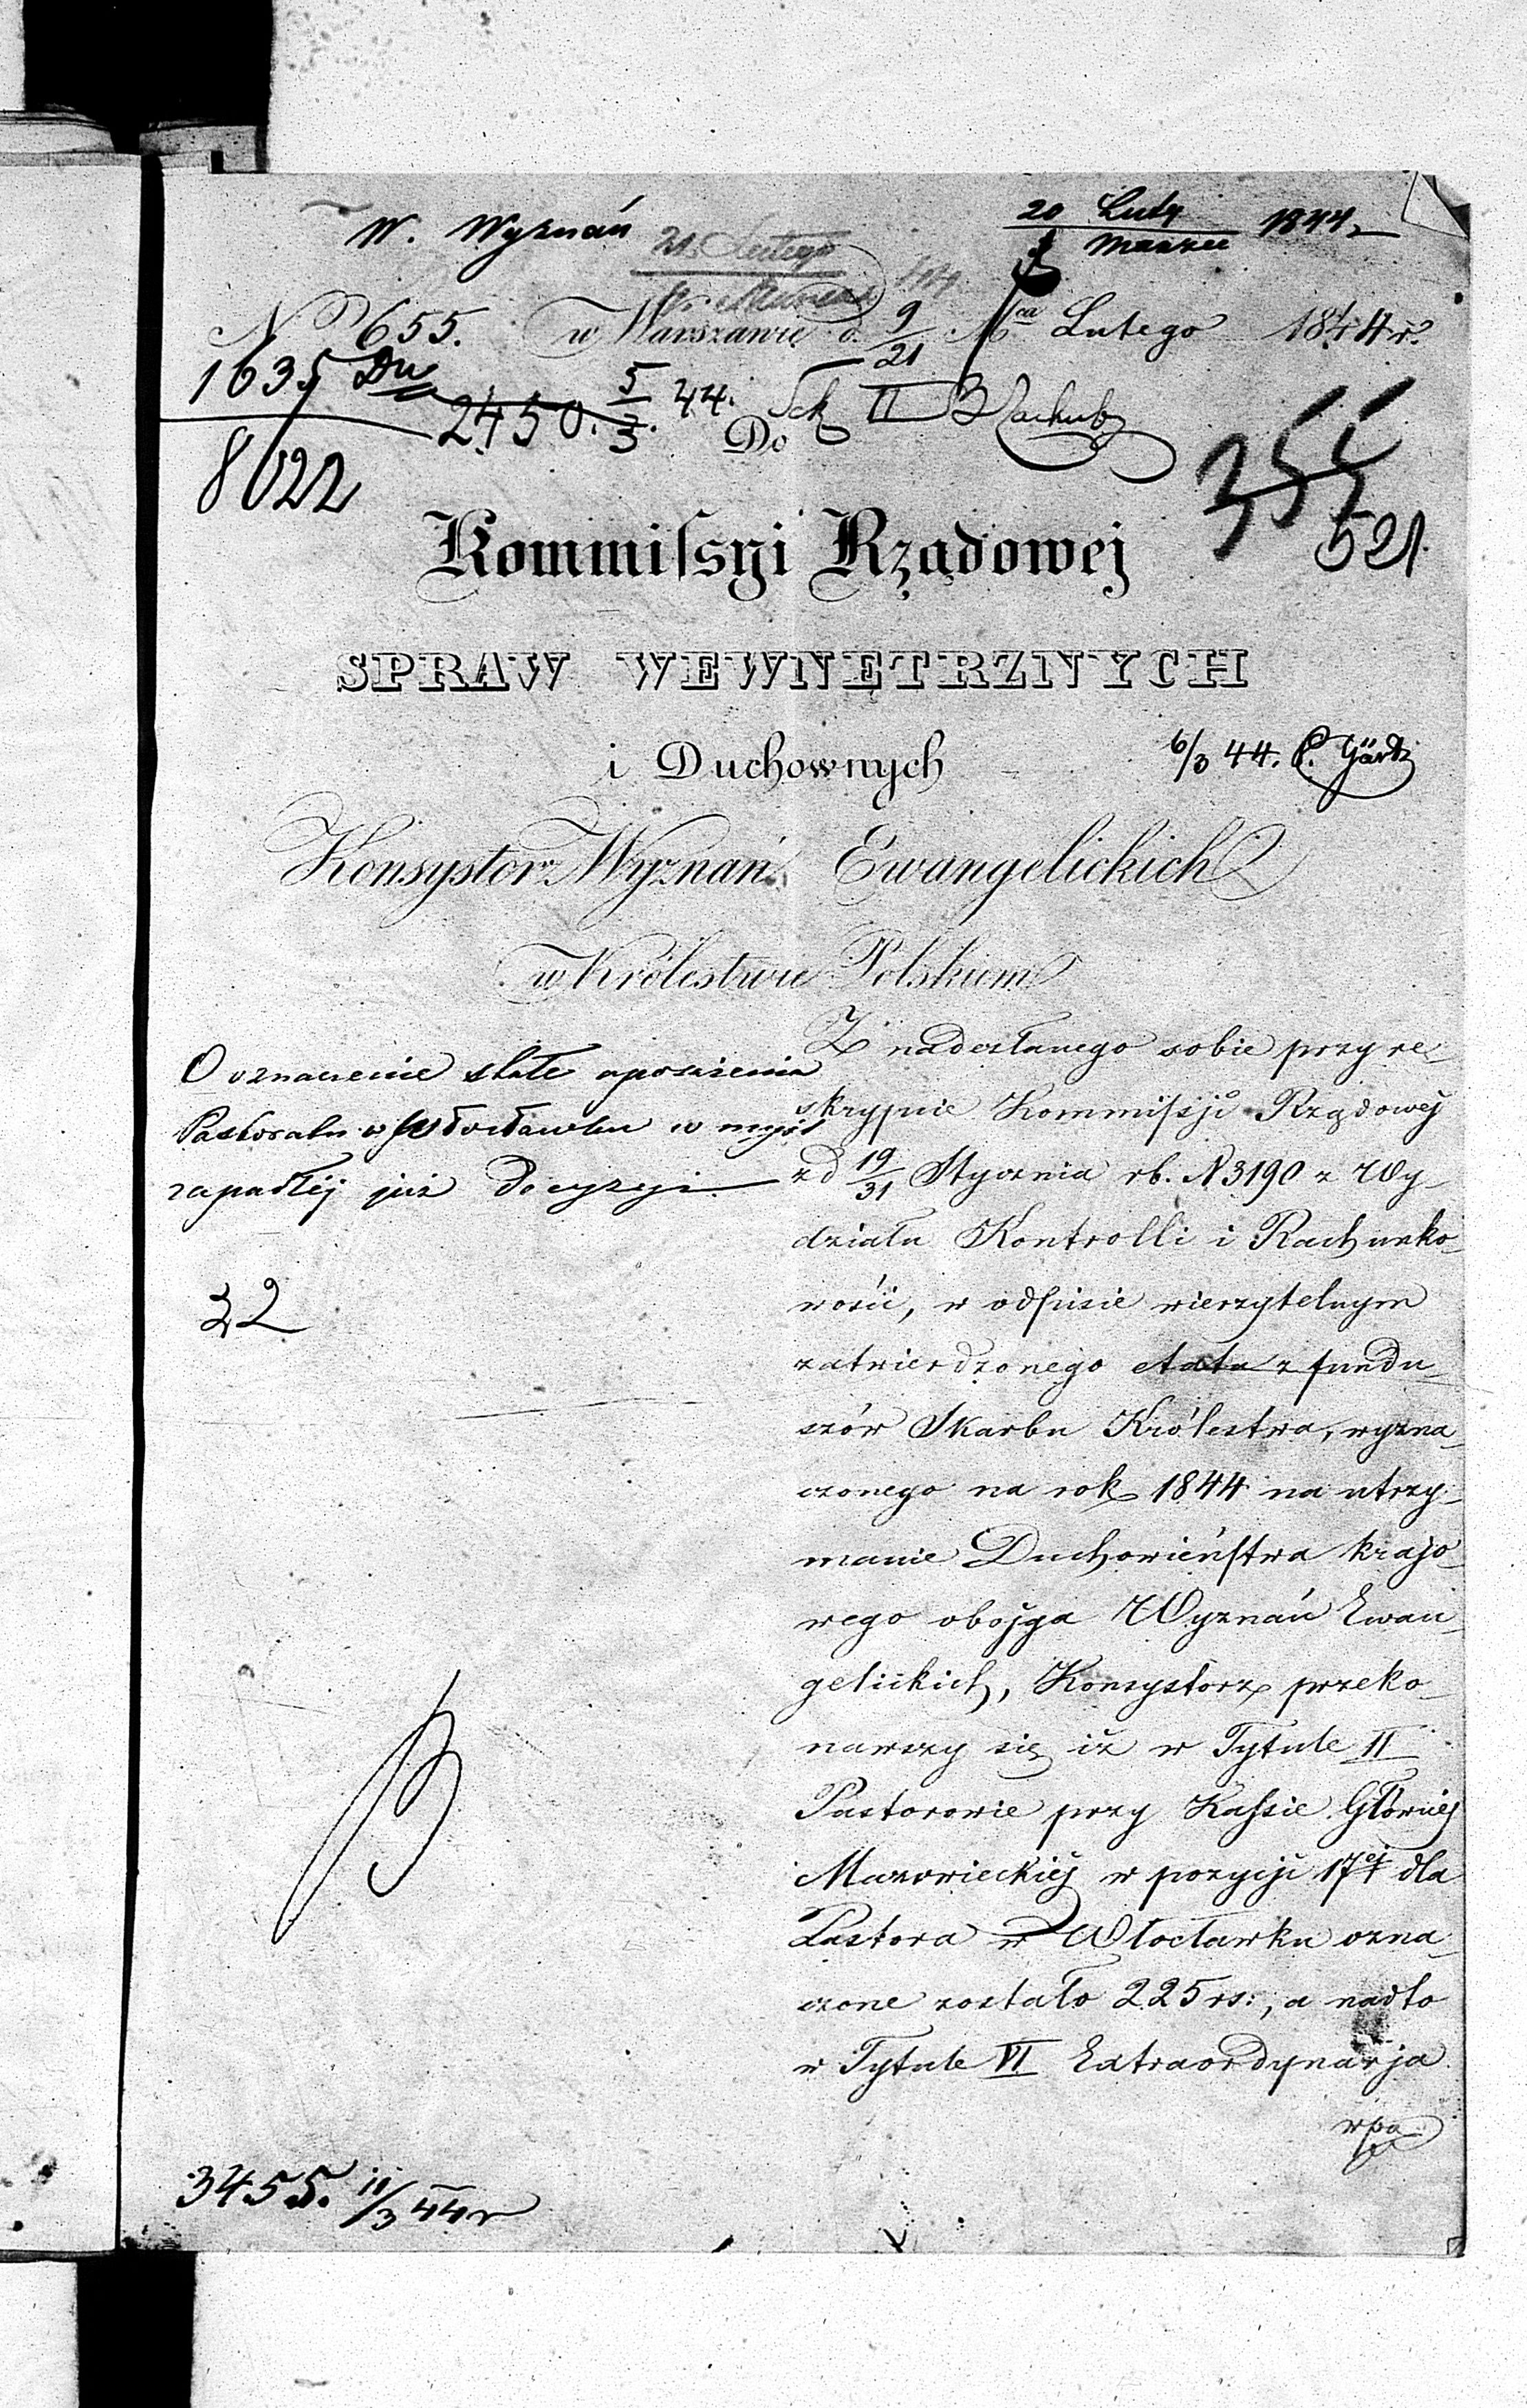 W. Wyznań
20 Luty 1844
Marzec
21 Lutego
Marca
N 655. w Warszawie d. 9/21 Mca Lutego 1844 r.
1635 Du
2450. 5/3. 44. Sek II Rachub
8022
Do
355
521.
Kommiſsyi Rządowej
SPRAW WEWNĘTRZNYCH
i Duchownych
6/3 44.
Konsystorz Wyznań Ewangelickich
w Królestwie Polskiem
O oznaczenie stałe uposażenia
Pastoratu w Włocławku w myśl
zapadłej już Decyzyi.
22
Z nadesłanego sobie przy re-
skrypcie Kommiſsji Rządowej
z d 19/31 Stycznia rb. N 3190 z Wy-
działu Kontrolli i Rachunko-
wości, w odpisie wierzytelnym
zatwierdzonego etatu z fundu-
szów Skarbu Królestwa, wyzna-
czonego na rok 1844 na utrzy-
manie Duchowieństwa krajo-
wego obojga Wyznań Ewan-
gelickich, Konsystorz przeko-
nawszy się iż w Tytule II
Pastorowie przy Kaſsie Głównej
Mazowieckiej w pozycji 17ej dla
Pastora w Włocławku ozna-
czone zostało 225 rs:, a nadto
w Tytule VI Extraordynarja
w po
3455. 11/3 44 r